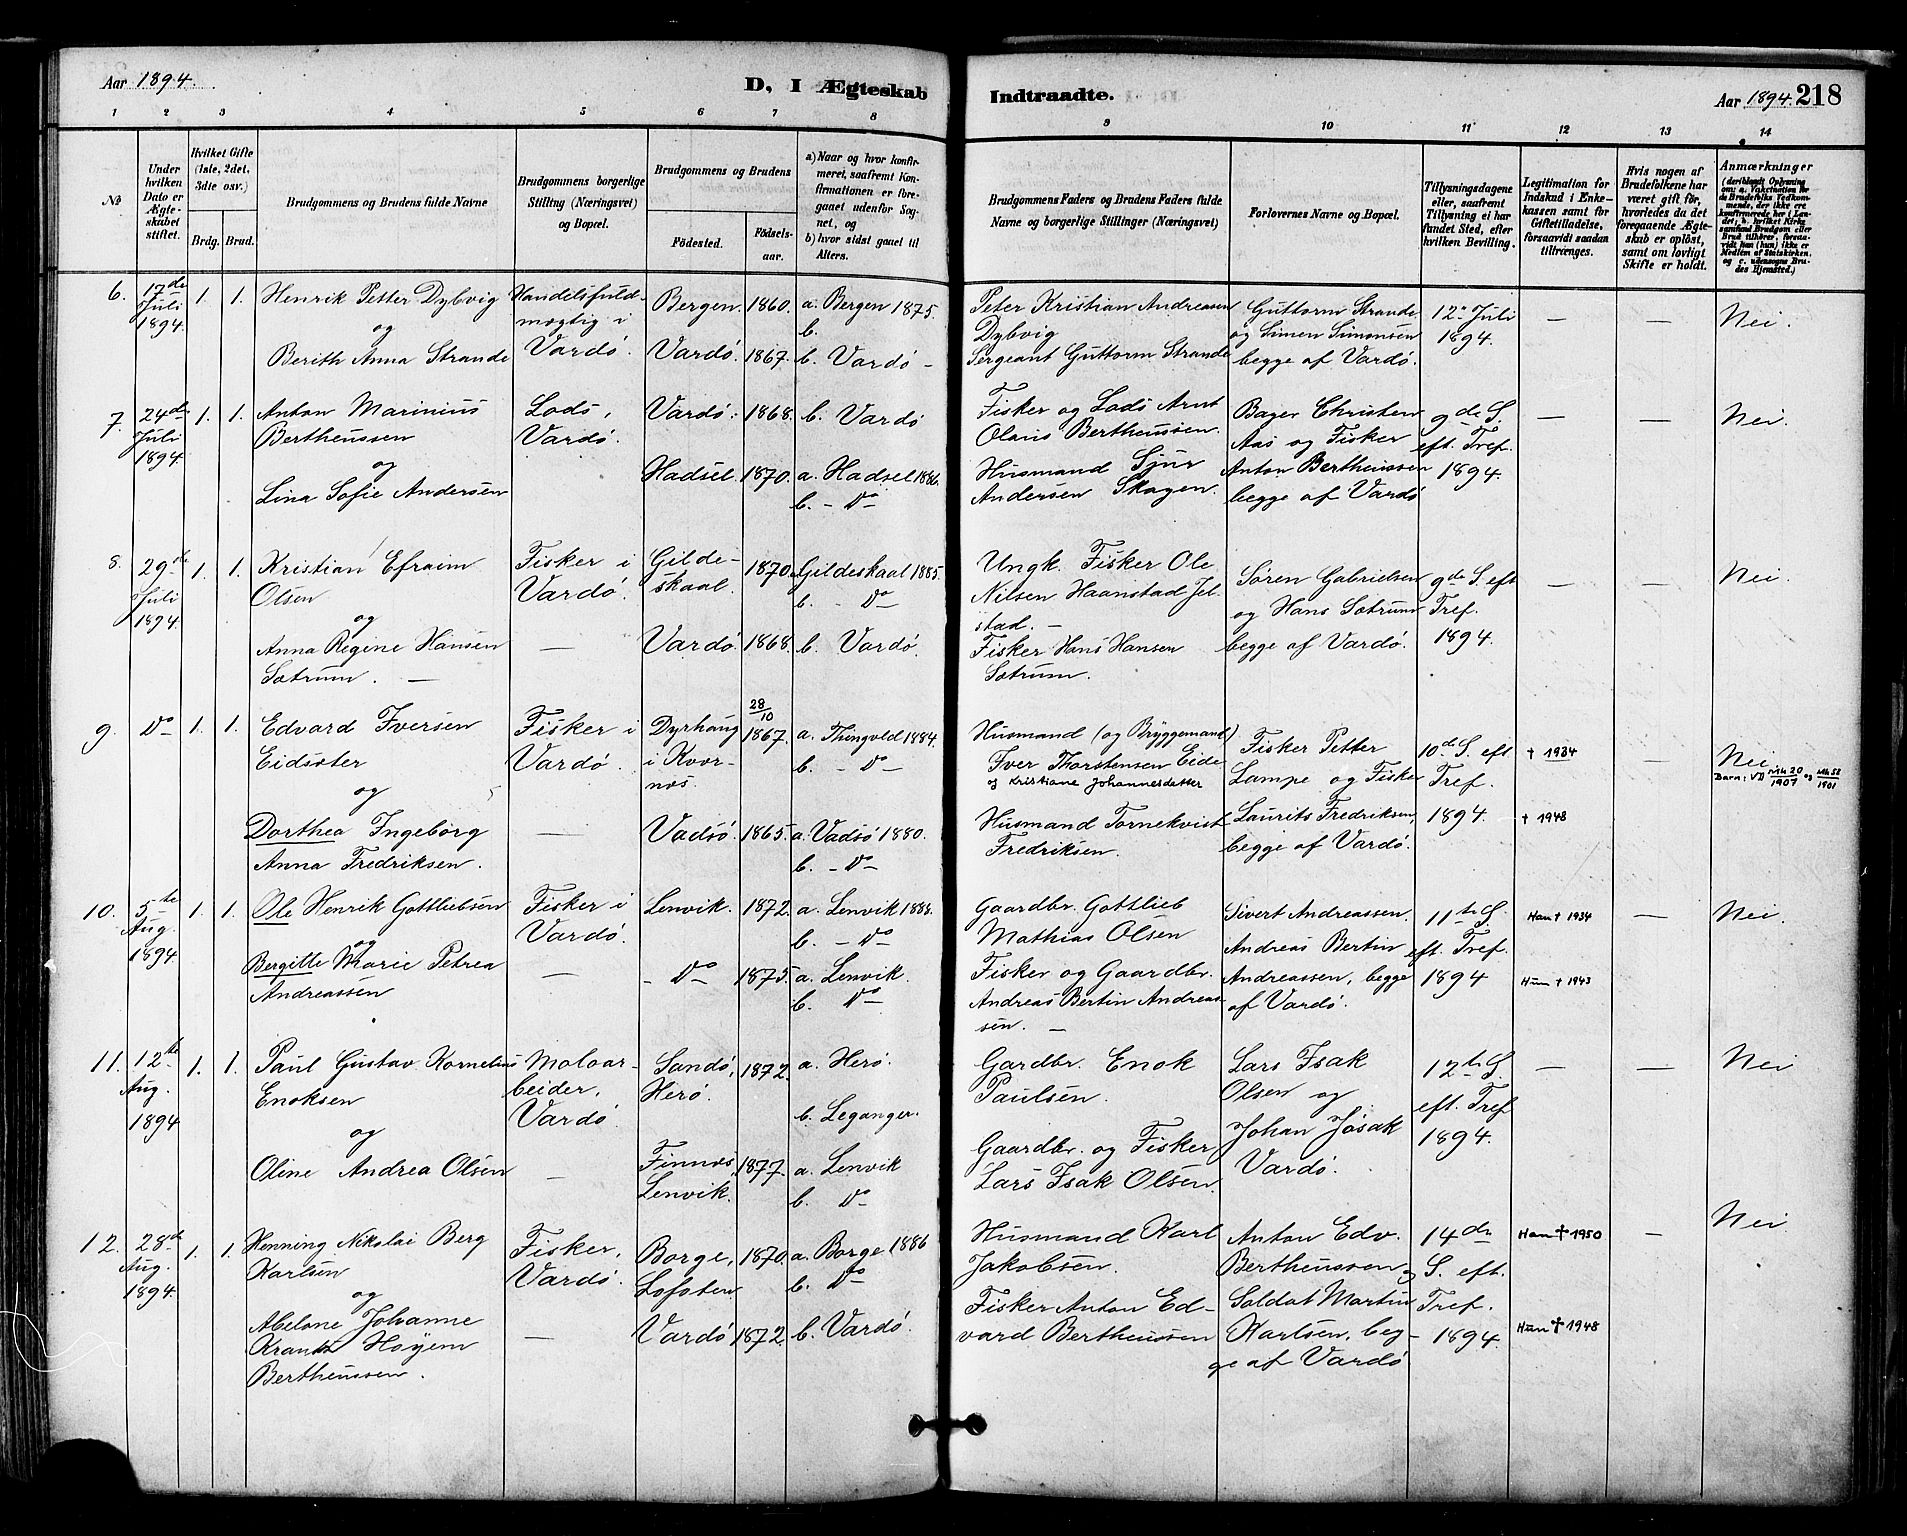 Aar 1894.
D, I Ægteskab
Indtraadte.
Aar 1894. 218
1 2 3 4 5 6 7 8
9 10 11 12 13 14
No
Under hvilken Dato er Ægteskabet stiftet.
Hvilket Gifte (1ste, 2det, 3die osv.)
Brdg. Brud.
Brudgommens og Brudens fulde Navne
Brudgommens borgerlige Stilling (Næringsvei) og Bopæl.
Brudgommens og Brudens
Fødested. Fødselsaar.
a) Naar og hvor konfirmeret, saafremt Konfirmationen er foregaaet udenfor Sognet, og
b) hvor sidst gaaet til Alters.
Brudgommens Faders og Brudens Faders fulde Navne og borgerlige Stillinger (Næringsvei)
Forlovernes Navne og Bopæl.
Tillysningsdagene eller, saafremt Tillysning ei har fundet Sted, efter hvilken Bevilling.
Legitimation for Indskud i Enkekassen samt for Giftetilladelse, forsaavidt saadan tiltrænges.
Hvis nogen af Brudefolkene har været gift før, hvorledes da det foregaaende Ægteskab er opløst, samt om lovligt Skifte er holdt.
Anmærkninger (deriblandt Oplysning om: a. Vakcination for de Brudefolks Vedkommende, der ikke ere konfirmerede her i Landet; b. hvilket Kirkesamfund Brudgom eller Brud tilhører, forsaavidt han (hun) ikke er Medlem af Statskirken, og c. udensogns Brudes Hjemsted.)
6. 17de Juli 1894. 1. 1.
Henrik Petter Dybvig
og
Berith Anna Strande
Handelsfuldmægtig i Vardö.
Bergen. 1860. a. Bergen 1875.
b.
Vardö. 1867. b. Vardö -
Peter Kristian Andreasen
Dybvig
Sergeant Guttorm Strande
Guttorm Strande
og Simen Simonsen
begge af Vardö.
12te Juli
1894.
— — Nei.
7. 24de Juli 1894. 1. 1.
Anton Marinius
Bertheussen
og
Lina Sofie Andersen
Lods,
Vardö.
Vardö. 1868. b. Vardö
Hadsel. 1870. a. Hadsel 1886.
b. - Do
Fisker og Lods Arnt
Olaus Bertheussen.
Husmand Sjur
Andersen Skagen.
Bager Christen
Aas og Fisker
Anton Bertheussen
begge af Vardö
9de S.
eft. Tref.
1894.
— — Nei.
8. 29de Juli 1894. 1. 1.
Kristian Efraim
Olsen
og
Anna Regine Hansen
Sætrum. —
Fisker i
Vardö.
—
Gildeskaal. 1870. a. Gildeskaal 1885.
b. - Do
Vardö. 1868. b. Vardö.
Ungk. Fisker Ole
Nilsen Haanstad Jelstad. —
Fisker Hans Hansen
Sætrum.
Sören Gabrielsen
og Hans Sætrum
begge af Vardö.
9de S. eft
Tref.
1894.
— — Nei.
9. Do 1. 1.
Edvard Iversen
Eidsæter
og
Dorthea Ingeborg
Anna Fredriksen.
Fisker i
Vardö.
—
Dyrhaug
i Kvernæs.
28/10
1867. a. Thingvold 1884.
b. - Do
Vadsö. 1865. a. Vadsö 1880.
b. - Do
Husmand (og Bryggemand)
Iver Thorstensen Eide
og Kristiane Johannesdatter
Husmand Tornekvist
Fredriksen.
Fisker Petter
Lampe og Fisker
Laurits Fredriksen,
begge af Vardö.
10de S. eft
Tref.
1894.
† 1934
† 1948
— Nei
10. 5te Aug. 1894. 1. 1.
Ole Henrik Gottliebsen
og
Bergitte Marie Petrea
Andreassen
Fisker i
Vardö.
—
Lenvik. 1872. a. Lenvik 1888.
b. - Do
- Do 1875. a. Lenvik.
b. Do
Gaardbr. Gottlieb
Mathias Olsen
Fisker og Gaardbr.
Andreas Bertin Andreassen. —
Sivert Andreassen.
Andreas Bertin
Andreassen, begge
af Vardö.
11te S.
eft. Tref.
1894
Han † 1934
Hun † 1943
— Nei.
11. 12te Aug. 1894 1. 1.
Paul Gustav Kornelius
Enoksen
og
Oline Andrea Olsen
Moloarbeider,
Vardö.
—
Sandö,
Herö. 1872. a. Herö.
b. Leganger.
Finnæs,
Lenvik. 1877. a. Lenvik
b. Do
Gardbr. Enok
Paulsen.
Gaardbr. og Fisker
Lars Isak Olsen.
Lars Isak
Olsen og
Johan Josak
Vardö.
12te S.
eft. Tref
1894.
— — Nei
12. 28de Aug. 1894 1. 1.
Henning Nikolai Berg
Karlsen
og
Abelone Johanne
Krantz Höyem
Bertheussen.
Fisker,
Vardö.
—
Borge,
Lofoten 1870. a. Borge 1886
b. Do
Vardö 1872. b. Vardö.
Husmand Karl
Jakobsen.
Fisker Anton Edvard Bertheussen
Anton Edv.
Bertheussen og
Soldat Martin
Karlsen, begge af Vardö
14de
S. eft.
Tref.
1894.
Han † 1950
Hun † 1948
— Nei